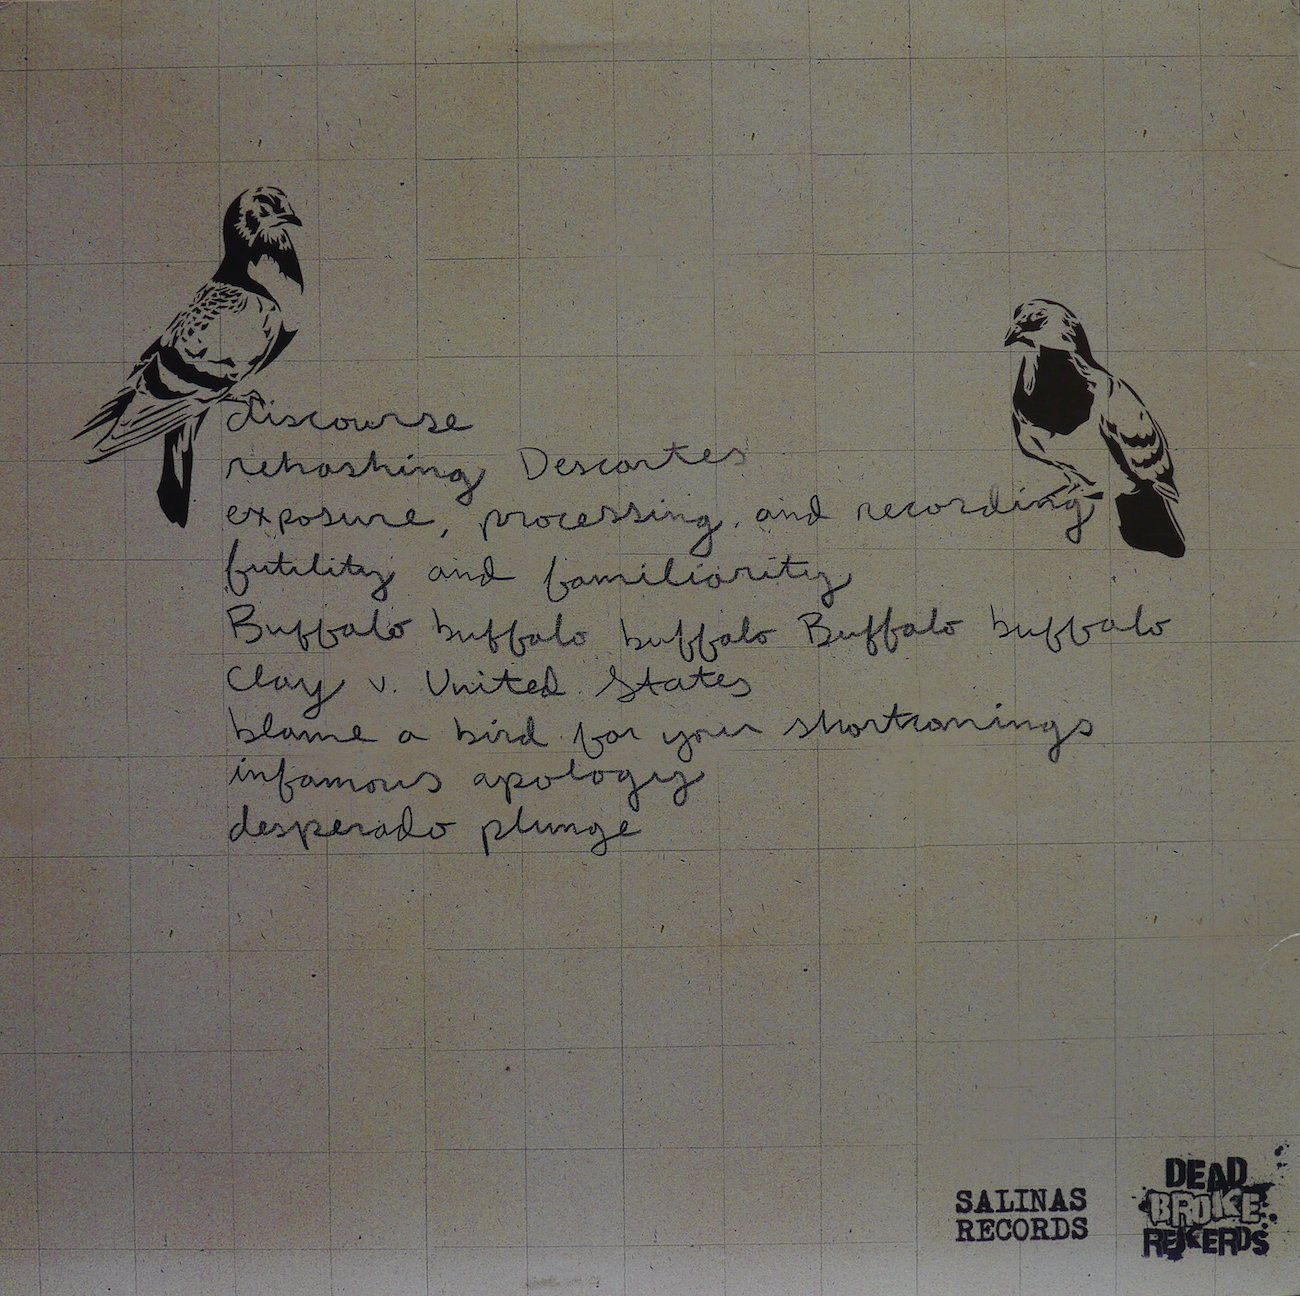 discourse
rehashing Descartes
exposure, processing, and recording
futility and familiarity
Buffalo buffalo buffalo Buffalo buffalo
Clay v. United States
blame a bird for your shortcomings
infamous apology
desperado plunge
SALINAS
RECORDS
DEAD
BROKE
REKERDS